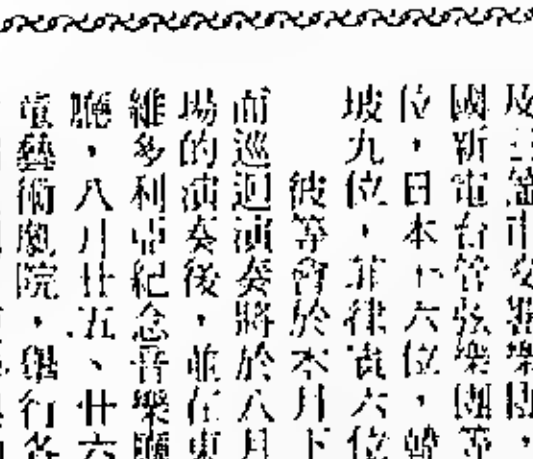 國新電台管弦樂團等
位，日本十六位，韓
坡九位，菲律賓六位
彼等會於本月下
面巡迴演奏將於八月
場的演奏後，並在東
維多利亞紀念音樂廳
廳，八月廿五、廿六
童藝術劇院，舉行各